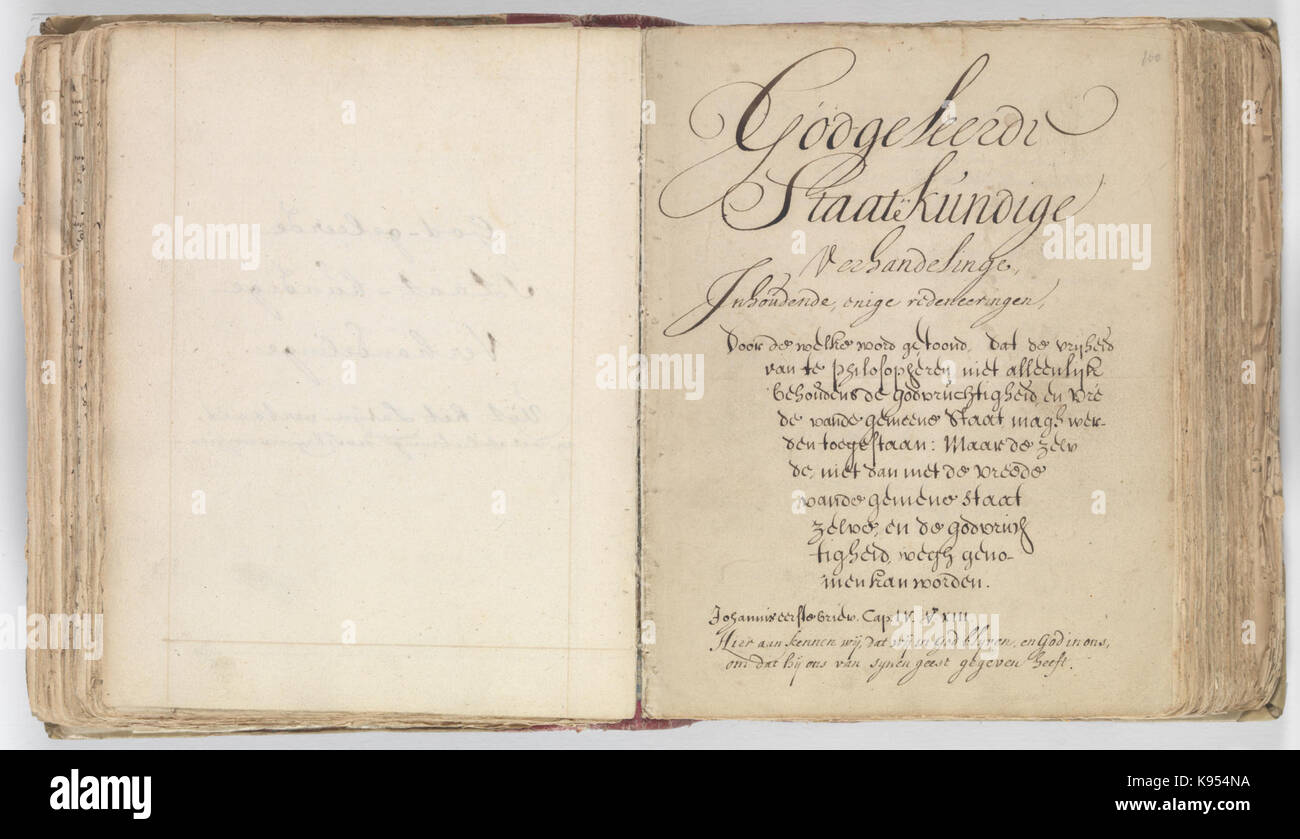 God-geleerde
Staat-kundige
Verhandelinge
Uit het Latijn
100
Godgeleerde
Staatkundige
Verhandelinge,
Inhoudende, enige redeneeringen,
Door de welke word getoond, dat de vrijheid
van te philosopheren niet alleenlijk
behoudens de godvruchtigheid, en vre
de vande gemeene Staat magh wer-
den toegestaan: Maar de zelv
de, niet dan met de vreede
vande gemene staat
zelve, en de godvruch
tigheid, wegh geno-
men kan worden.
Johannis eerste brief. Cap. IV. V XIII
Hier aan kennen wij, dat wij in God blijven, en God in ons,
om dat hij ons van synen geest gegeven heeft.
alamy stock photo
K954NA
www.alamy.com